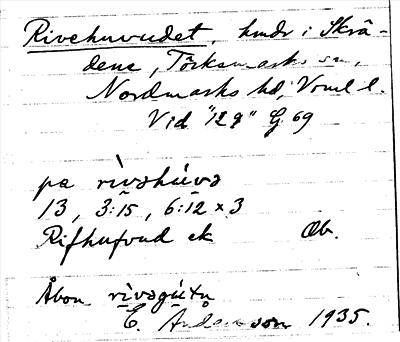 Rivehuvudet, hmdr i Skrä-
dene, Törksmarks sn,
Nordmarks hd, Vrml l.
Vid "129" G 69
pa rìvəhúvə
13, 3:15, 6:12 x 3
Rifhufvud ek Ob.
Åbon rìvəgútn
E. Andersson 1935.